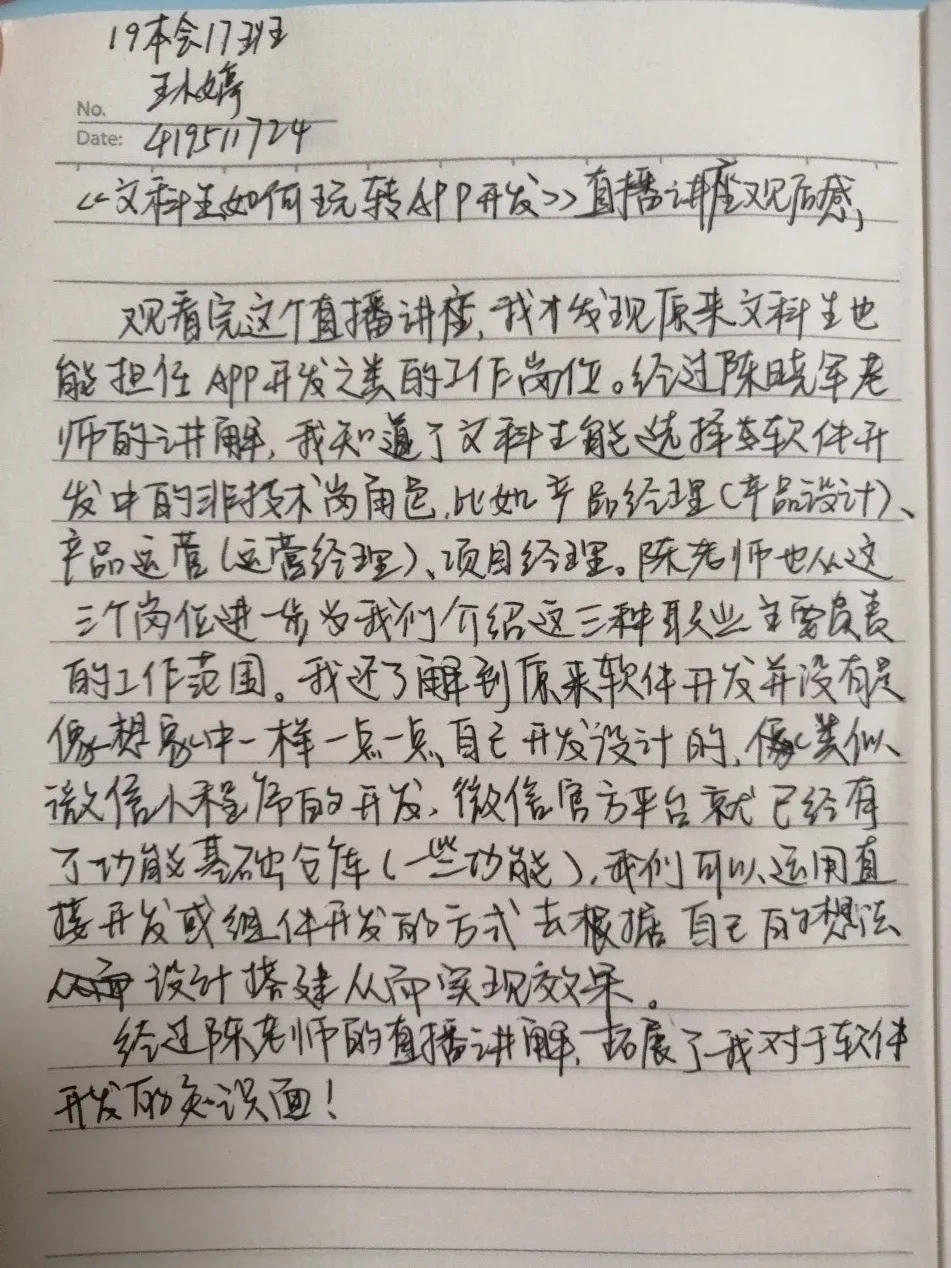 19本会17班
王婷
No.
Date: 419511724
<<文科生如何玩转APP开发>>直播讲座观后感,
观看完这个直播讲座,我才发现原来文科生也
能担任APP开发之类的工作岗位。经过陈晓军老
师的讲解,我知道了文科生能选择软件开
发中的非技术岗角色,比如产品经理(产品设计)、
产品运营(运营经理)、项目经理。陈老师也从这
三个岗位进一步为我们介绍这三种职业主要负责
的工作范围。我还了解到原来软件开发并没有是
像想象中一样一点一点自己开发设计的,像类似
微信小程序的开发,微信官方平台就已经有
了功能基础仓库(一些功能),我们可以运用直
接开发或组件开发的方式去根据自己的想法
设计搭建从而实现效果。
经过陈老师的直播讲解,拓展了我对于软件
开发的知识面!